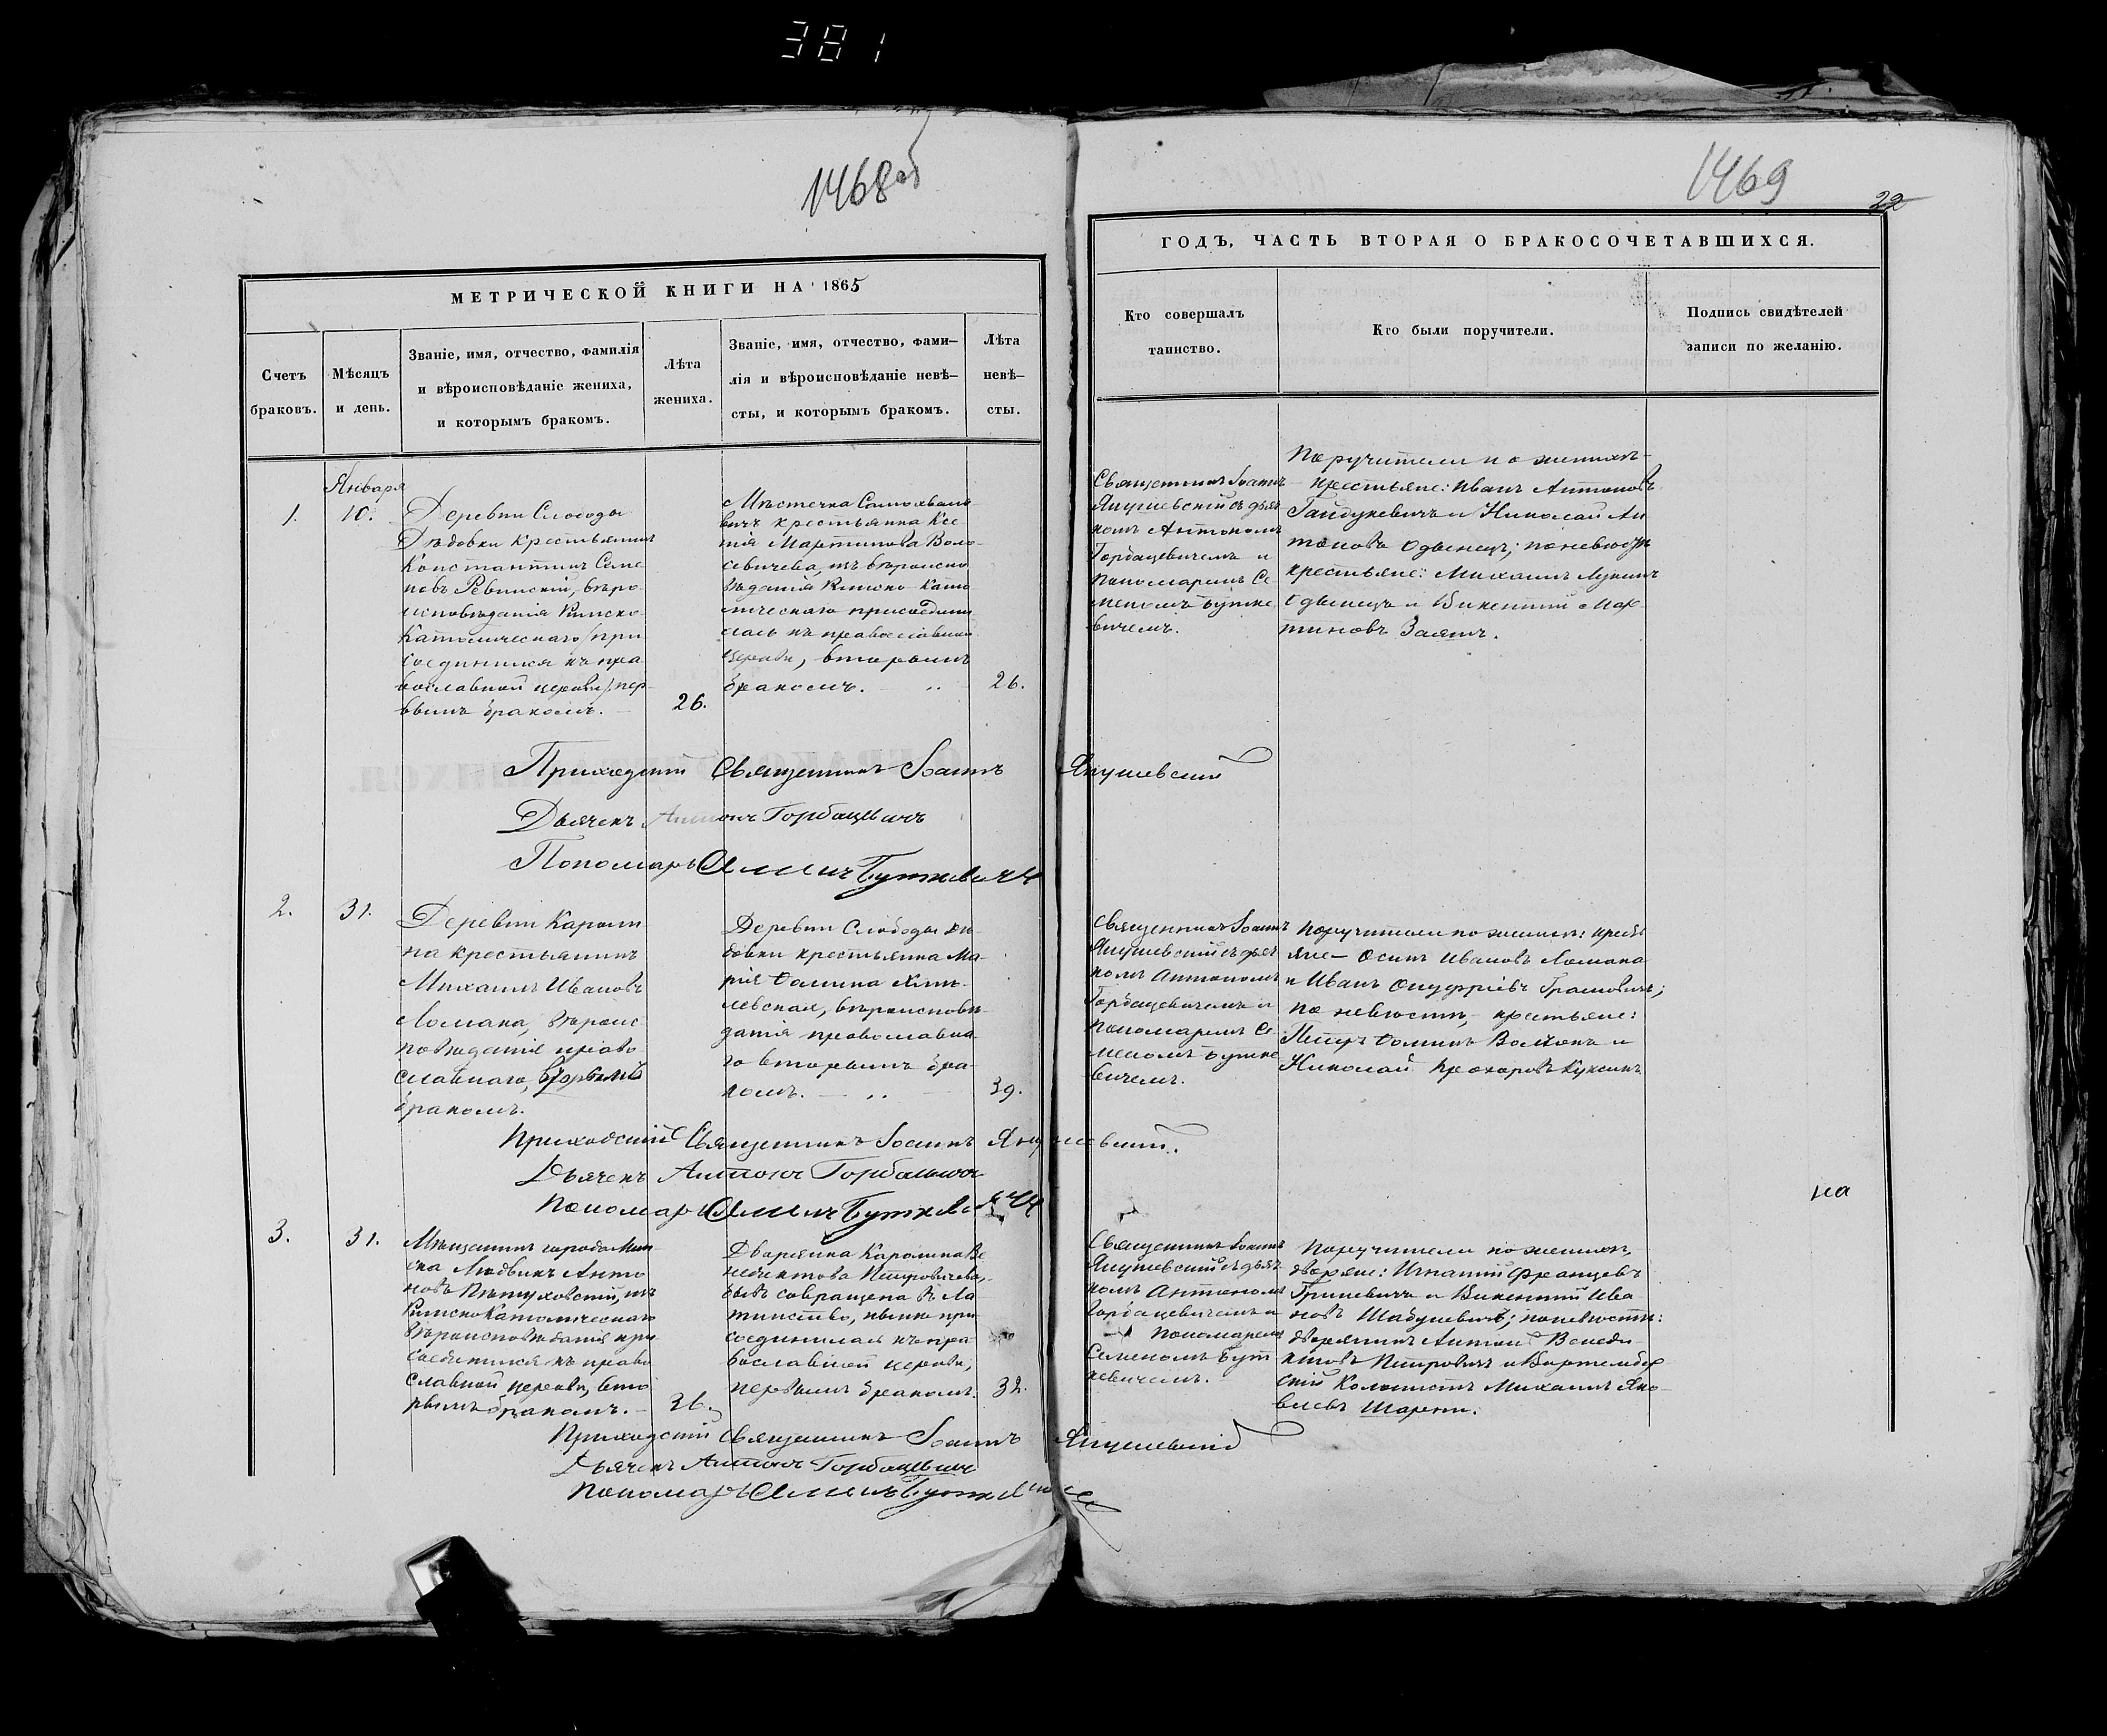 381
1468 об
1469
22
МЕТРИЧЕСКОЙ КНИГИ НА 1865
ГОДЪ, ЧАСТЬ ВТОРАЯ О БРАКОСОЧЕТАВШИХСЯ.
Счетъ
браковъ.
Мѣсяцъ
и день.
Званіе, имя, отчество, фамилія
и вѣроисповѣданіе жениха,
и которымъ бракомъ.
Лѣта
жениха.
Званіе, имя, отчество, фами—
лія и вѣроисповѣданіе невѣ—
сты, и которымъ бракомъ.
Лѣта
невѣ—
сты.
Кто совершалъ
таинство.
Кто были поручители.
Подпись свидѣтелей
записи по желанію.
1.
Января
10.
Деревни Слободы
Дѣдовки крестьянинъ
Константинъ Семе
новъ Ревинскій, вѣро
исповѣданія Римско
Католическаго /при
соединился къ пра
вославной церкви/ пер
вымъ бракомъ.
26.
Мѣстечка Самохвало
вичъ крестьянка Ксе
нія Мартинова Воло
севичева, изъ вѣроиспо
вѣданія Римско Като
лическаго присоедини
лась къ православной
церкви, вторымъ
бракомъ.
26.
Священникъ Іоаннъ
Янушевскій съ дьяч
комъ Антономъ
Горбацевичемъ и
пономаремъ Се
меномъ Бутке
вичемъ.
Поручители по женихѣ
крестьяне: Иванъ Антоновъ
Гайдукевичъ и Николай Ан
тоновъ Одынецъ; по невѣстѣ
крестьяне: Михаилъ Лукинъ
Одынецъ и Викентій Мар
тиновъ Заяцъ.
Приходскій Священникъ Іоаннъ Янушевскій
Дьячекъ Антонъ Горбацевичъ
Пономарь Семенъ Буткевичъ
2.
31.
Деревни Кароли
на крестьянинъ
Михаилъ Ивановъ
Ломака, вѣроис
повѣданія право
славнаго, вторымъ
бракомъ.
Деревни Слободы Дѣ
довки крестьянка Ма
рія Фомина
левская, вѣроисповѣ
данія православна
го вторымъ бра
комъ.
39.
Священникъ Іоаннъ
Янушевскій съ дьяч
комъ Антономъ
Горбацевичемъ и
пономаремъ Се
меномъ Бутке
вичемъ.
Поручители по женихѣ: кресть
яне — Осипъ Ивановъ Ломака
и Иванъ Онуфріевъ Громовичъ;
по невѣстѣ, крестьяне:
Петръ Фоминъ и
Николай Прохоровъ
Приходскій Священникъ Іоаннъ Янушевскій.
Дьячекъ Антонъ Горбацевичъ
Пономарь Семенъ Буткевичъ
на
3.
31.
Мѣщанинъ города Мин
ска Людвикъ Анто
новъ Пѣтуховскій, изъ
Римско Католическаго
вѣроисповѣданія при
соединился къ право
славной церкви, вто
рымъ бракомъ.
36.
Дворянка Каролина Ве
недиктова Петровичева,
бывъ совращена въ Ла
тинство, нынѣ при
соединилась къ пра
вославной церкви,
первымъ бракомъ.
32.
Священникъ Іоаннъ
Янушевскій съ дьяч
комъ Антономъ
Горбацевичемъ и
пономаремъ
Семеномъ Бут
кевичемъ.
Поручители по женихѣ,
дворяне: Игнатій Францевъ
Гриневичъ и Викентій Ива
новъ Шабуневичъ; по невѣстѣ:
дворянинъ Антонъ Венеди
ктовъ Петровичъ и Виртембер
скій Колонистъ Михаилъ Яко
влевъ
Приходскій Священникъ Іоаннъ Янушевскій
Дьячекъ Антонъ Горбацевичъ
Пономарь Семенъ Буткевичъ